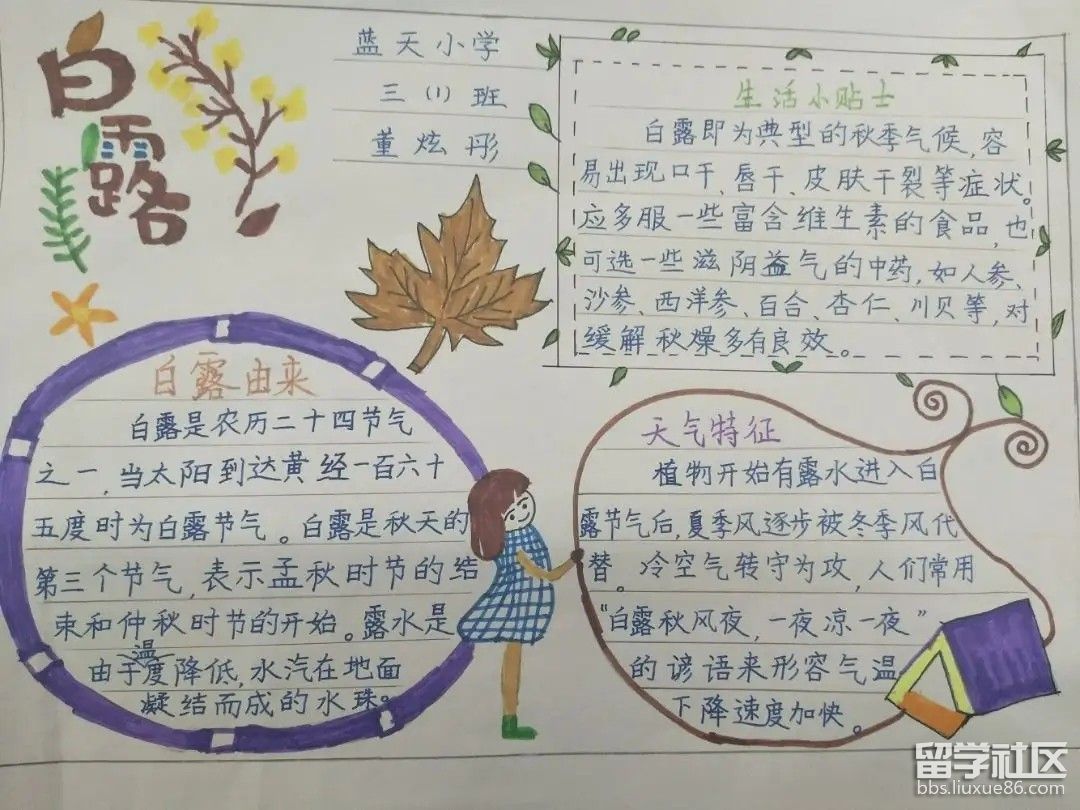 白露
蓝天小学
三(1)班
董炫彤
生活小贴士
白露即为典型的秋季气候,容
易出现口干、唇干、皮肤干裂等症状。
应多服一些富含维生素的食品,也
可选一些滋阴益气的中药,如人参、
沙参、西洋参、百合、杏仁、川贝等,对
缓解秋燥多有良效。
白露由来
白露是农历二十四节气
之一,当太阳到达黄经一百六十
五度时为白露节气。白露是秋天的
第三个节气,表示孟秋时节的结
束和仲秋时节的开始。露水是
由于温度降低,水汽在地面
凝结而成的水珠。
天气特征
植物开始有露水进入白
露节气后,夏季风逐步被冬季风代
替。冷空气转守为攻,人们常用
“白露秋风夜,一夜凉一夜”
的谚语来形容气温
下降速度加快。
留学社区
bbs.liuxue86.com